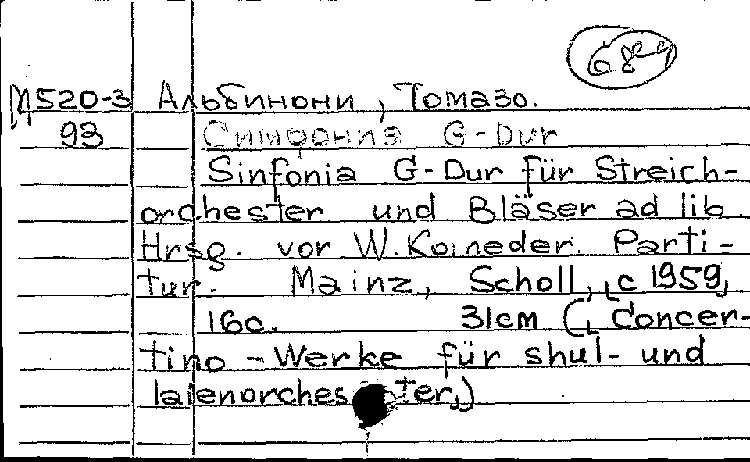 М520-3 Альбинони, Томазо.
93 Симфония G-Dur
Sinfonia G-Dur für Streich-
orchester und Bläser ad lib.
Hrsg. vor W. Koineder. Parti-
tur. Mainz, Scholl, [c 1959]
16с. 31cm ([Concer-
tino - Werke für shul- und
laienorchester])